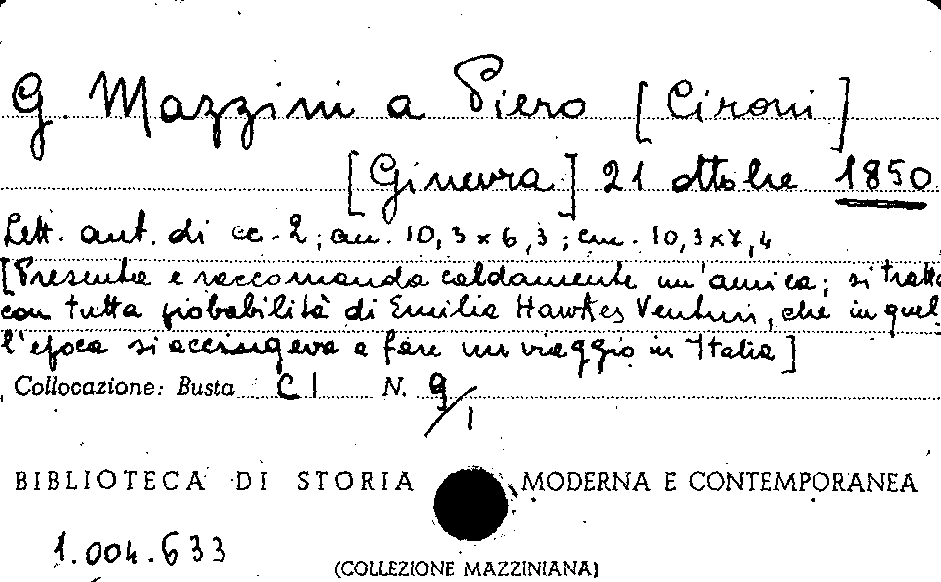 G. Mazzini a Piero [Cironi]
[Ginevra] 21 ottobre 1850
Lett. aut. di cc. 2; cm. 10,3 x 6,3; cm. 10,3 x 7,4
[Presenta e raccomanda caldamente un'amica; si tratta
con tutta probabilità di Emilia Hawkes Venturi, che in quel-
l'epoca si accingeva a fare un viaggio in Italia]
Collocazione: Busta CI N. 9/1
BIBLIOTECA DI STORIA MODERNA E CONTEMPORANEA
1.004.633
(COLLEZIONE MAZZINIANA)